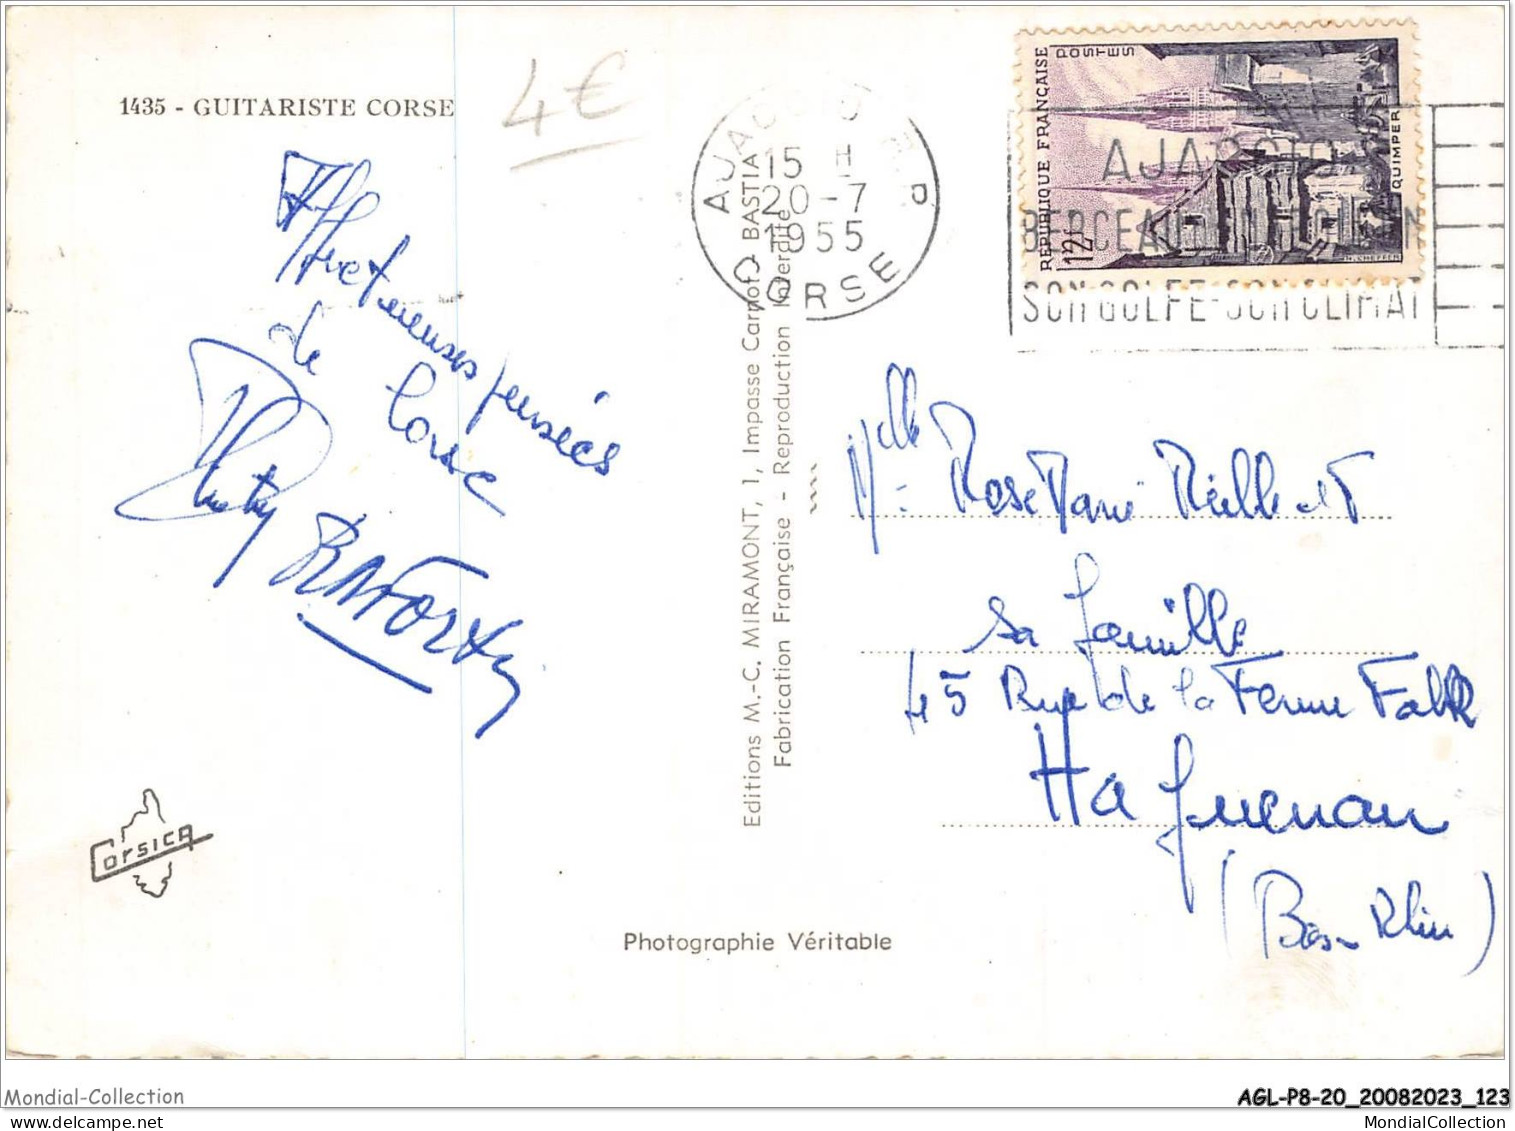 1435 - GUITARISTE CORSE
4€
Affectueuses pensées
de Corse
Corsica
Photographie Véritable
Editions M.-C. MIRAMONT, 1, Impasse Carnot, BASTIA
Fabrication Française - Reproduction Interdite
AJACCIO R.P.
15 H
20-7
1955
CORSE
RÉPUBLIQUE FRANÇAISE
POSTES
12F
QUIMPER
H. CHEFFER
AJACCIO
BERCEAU
SON GOLFE-SON CLIMAT
Melle Rose Marie
sa famille
45 Rue de la Ferme Falk
Haguenau
(Bas Rhin)
Mondial-Collection
AGL-P8-20_20082023_123
MondialCollection